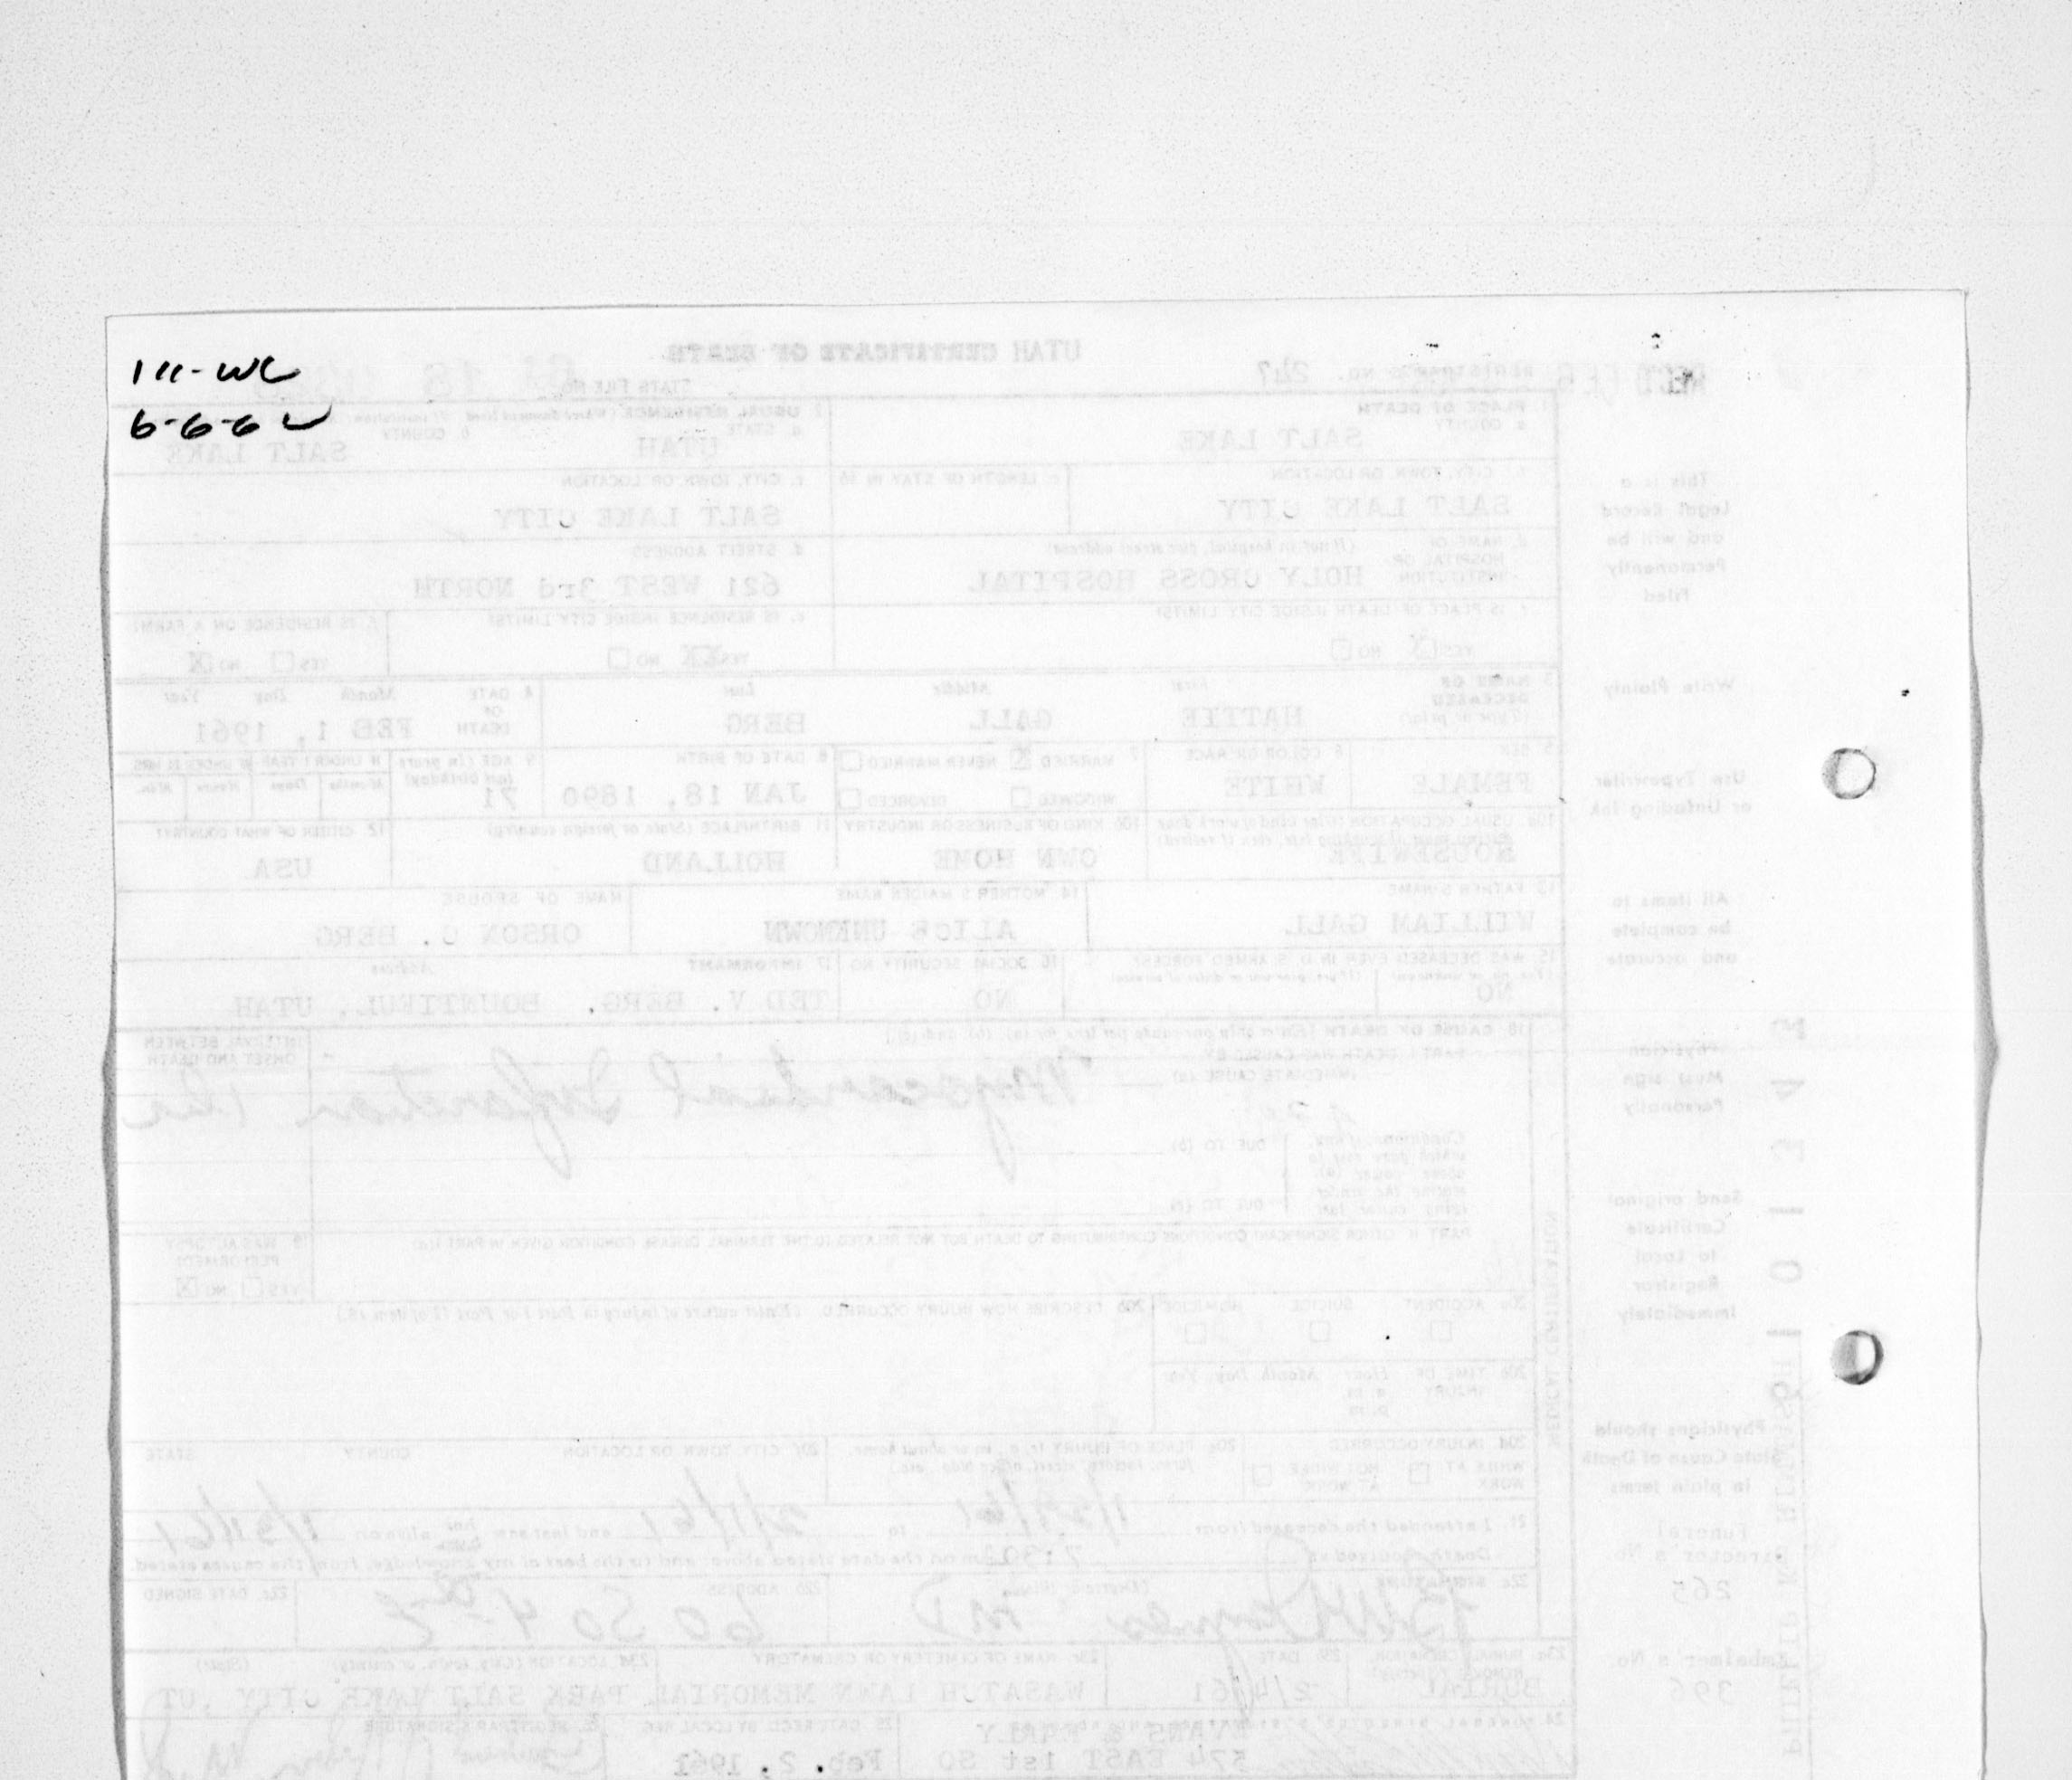 111-WC
6-6-6 U
UTAH CERTIFICATE OF DEATH
STATE FILE NO. 61 18
REGISTRAR'S NO. 247
1. PLACE OF DEATH
a. COUNTY
SALT LAKE
2. USUAL RESIDENCE
a. STATE
UTAH
b. COUNTY
SALT LAKE
b. CITY, TOWN, OR LOCATION
SALT LAKE CITY
c. LENGTH OF STAY IN 1b
c. CITY, TOWN OR LOCATION
SALT LAKE CITY
d. NAME OF HOSPITAL OR INSTITUTION
(If not in hospital, give street address)
HOLY CROSS HOSPITAL
d. STREET ADDRESS
621 WEST 3rd NORTH
e. IS PLACE OF DEATH INSIDE CITY LIMITS?
YES X NO
e. IS RESIDENCE INSIDE CITY LIMITS?
YES XX NO
f. IS RESIDENCE ON A FARM?
YES NO X
3. NAME OF DECEASED (Type or print)
First Middle Last
HATTIE GALL BERG
4. DATE OF DEATH
Month Day Year
FEB 1, 1961
5. SEX
FEMALE
6. COLOR OR RACE
WHITE
7. MARRIED X NEVER MARRIED
WIDOWED DIVORCED
8. DATE OF BIRTH
JAN 18, 1890
9. AGE (In years last birthday)
71
IF UNDER 1 YEAR IF UNDER 24 HRS
Months Days Hours Min.
10a. USUAL OCCUPATION (Give kind of work done during most of working life, even if retired)
HOUSEWIFE
10b. KIND OF BUSINESS OR INDUSTRY
OWN HOME
11. BIRTHPLACE (State or foreign country)
HOLLAND
12. CITIZEN OF WHAT COUNTRY?
USA
13. FATHER'S NAME
WILLIAM GALL
14. MOTHER'S MAIDEN NAME
ALICE UNKNOWN
NAME OF SPOUSE
ORSON C. BERG
15. WAS DECEASED EVER IN U.S. ARMED FORCES?
(Yes, no, or unknown) (If yes, give war or dates of service)
NO
16. SOCIAL SECURITY NO.
NO
17. INFORMANT Address
TED V. BERG. BOUNTIFUL, UTAH
18. CAUSE OF DEATH [Enter only one cause per line for (a), (b), and (c).]
PART I. DEATH WAS CAUSED BY:
IMMEDIATE CAUSE (a)
Myocardial Infarction
INTERVAL BETWEEN ONSET AND DEATH
1 hr
Conditions, if any, which gave rise to above cause (a), stating the underlying cause last.
DUE TO (b)
DUE TO (c)
PART II. OTHER SIGNIFICANT CONDITIONS CONTRIBUTING TO DEATH BUT NOT RELATED TO THE TERMINAL DISEASE CONDITION GIVEN IN PART I(a)
19. WAS AUTOPSY PERFORMED?
YES NO X
20a. ACCIDENT SUICIDE HOMICIDE
20b. DESCRIBE HOW INJURY OCCURRED. (Enter nature of injury in Part I or Part II of item 18.)
20c. TIME OF INJURY Hour Month, Day, Year
a.m.
p.m.
20d. INJURY OCCURRED
WHILE AT WORK NOT WHILE AT WORK
20e. PLACE OF INJURY (e.g., in or about home, farm, factory, street, office bldg., etc.)
20f. CITY, TOWN, OR LOCATION COUNTY STATE
21. I attended the deceased from to 2/1/61 and last saw alive on 1/31/61
Death occurred at 7:30 m on the date stated above; and to the best of my knowledge, from the causes stated.
22a. SIGNATURE (Degree or title)
MD
22b. ADDRESS
60 So 4th E
22c. DATE SIGNED
23a. BURIAL, CREMATION, REMOVAL (Specify)
BURIAL
23b. DATE
2/4/61
23c. NAME OF CEMETERY OR CREMATORY
WASATCH LAWN MEMORIAL PARK
23d. LOCATION (City, town, or county) (State)
SALT LAKE CITY, UT
EVANS & EARLY
574 EAST 1st SO
25. DATE RECD. BY LOCAL REG.
Feb. 2, 1961
26. REGISTRAR'S SIGNATURE
MEDICAL CERTIFICATION
This is a
Legal Record
and will be
Permanently
Filed
Write Plainly
Use Typewriter
or Unfading Ink
All items to
be complete
and accurate
Physician
Must sign
Personally
Send original
Certificate
to Local
Registrar
Immediately
Physicians should
State Cause of Death
in plain terms
Funeral
Director's No.
265
Embalmer's No.
396